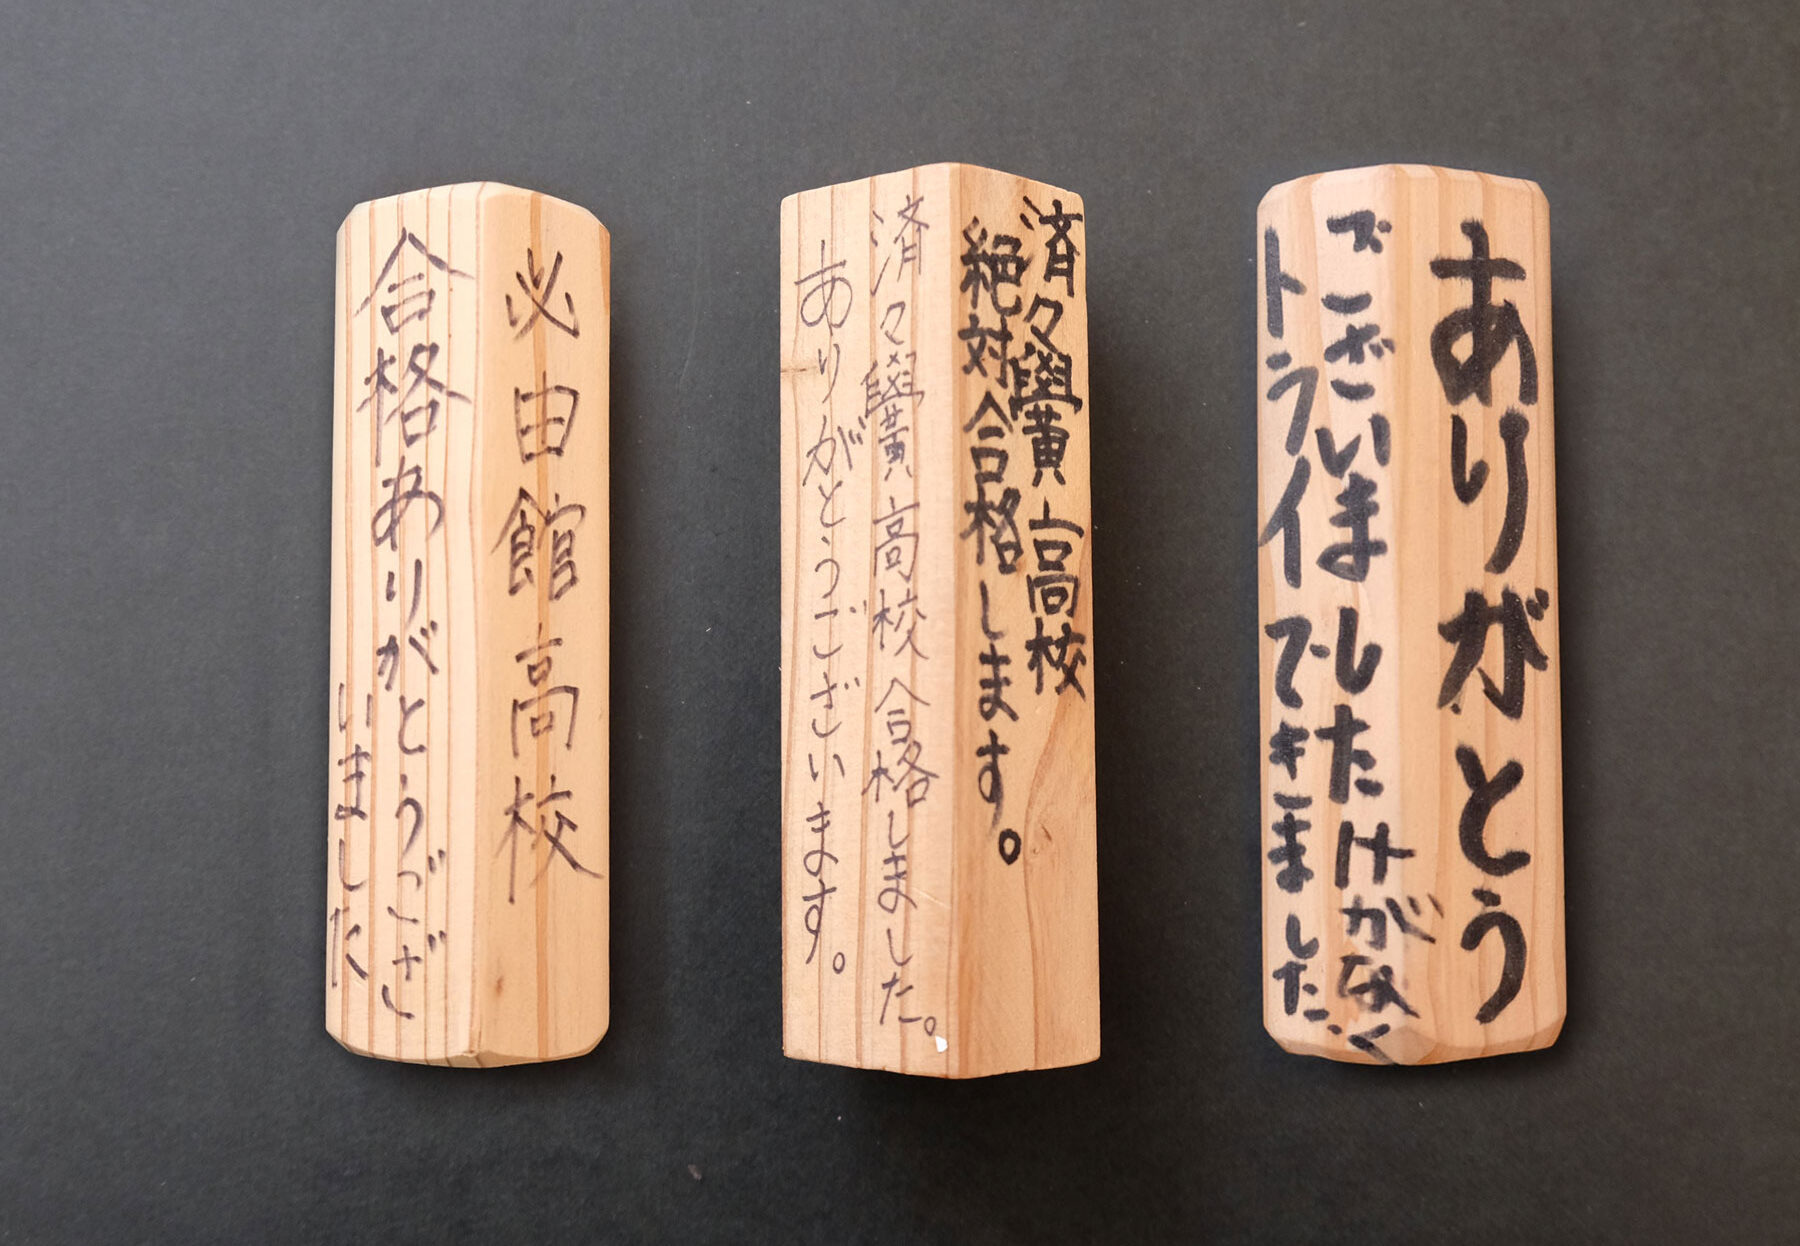 必由館高校
合格ありがとうござ
いました
済々黌高校
絶対合格します。
済々黌高校合格しました。
ありがとうございます。
ありがとう
ございましたけがなく
トライできました。